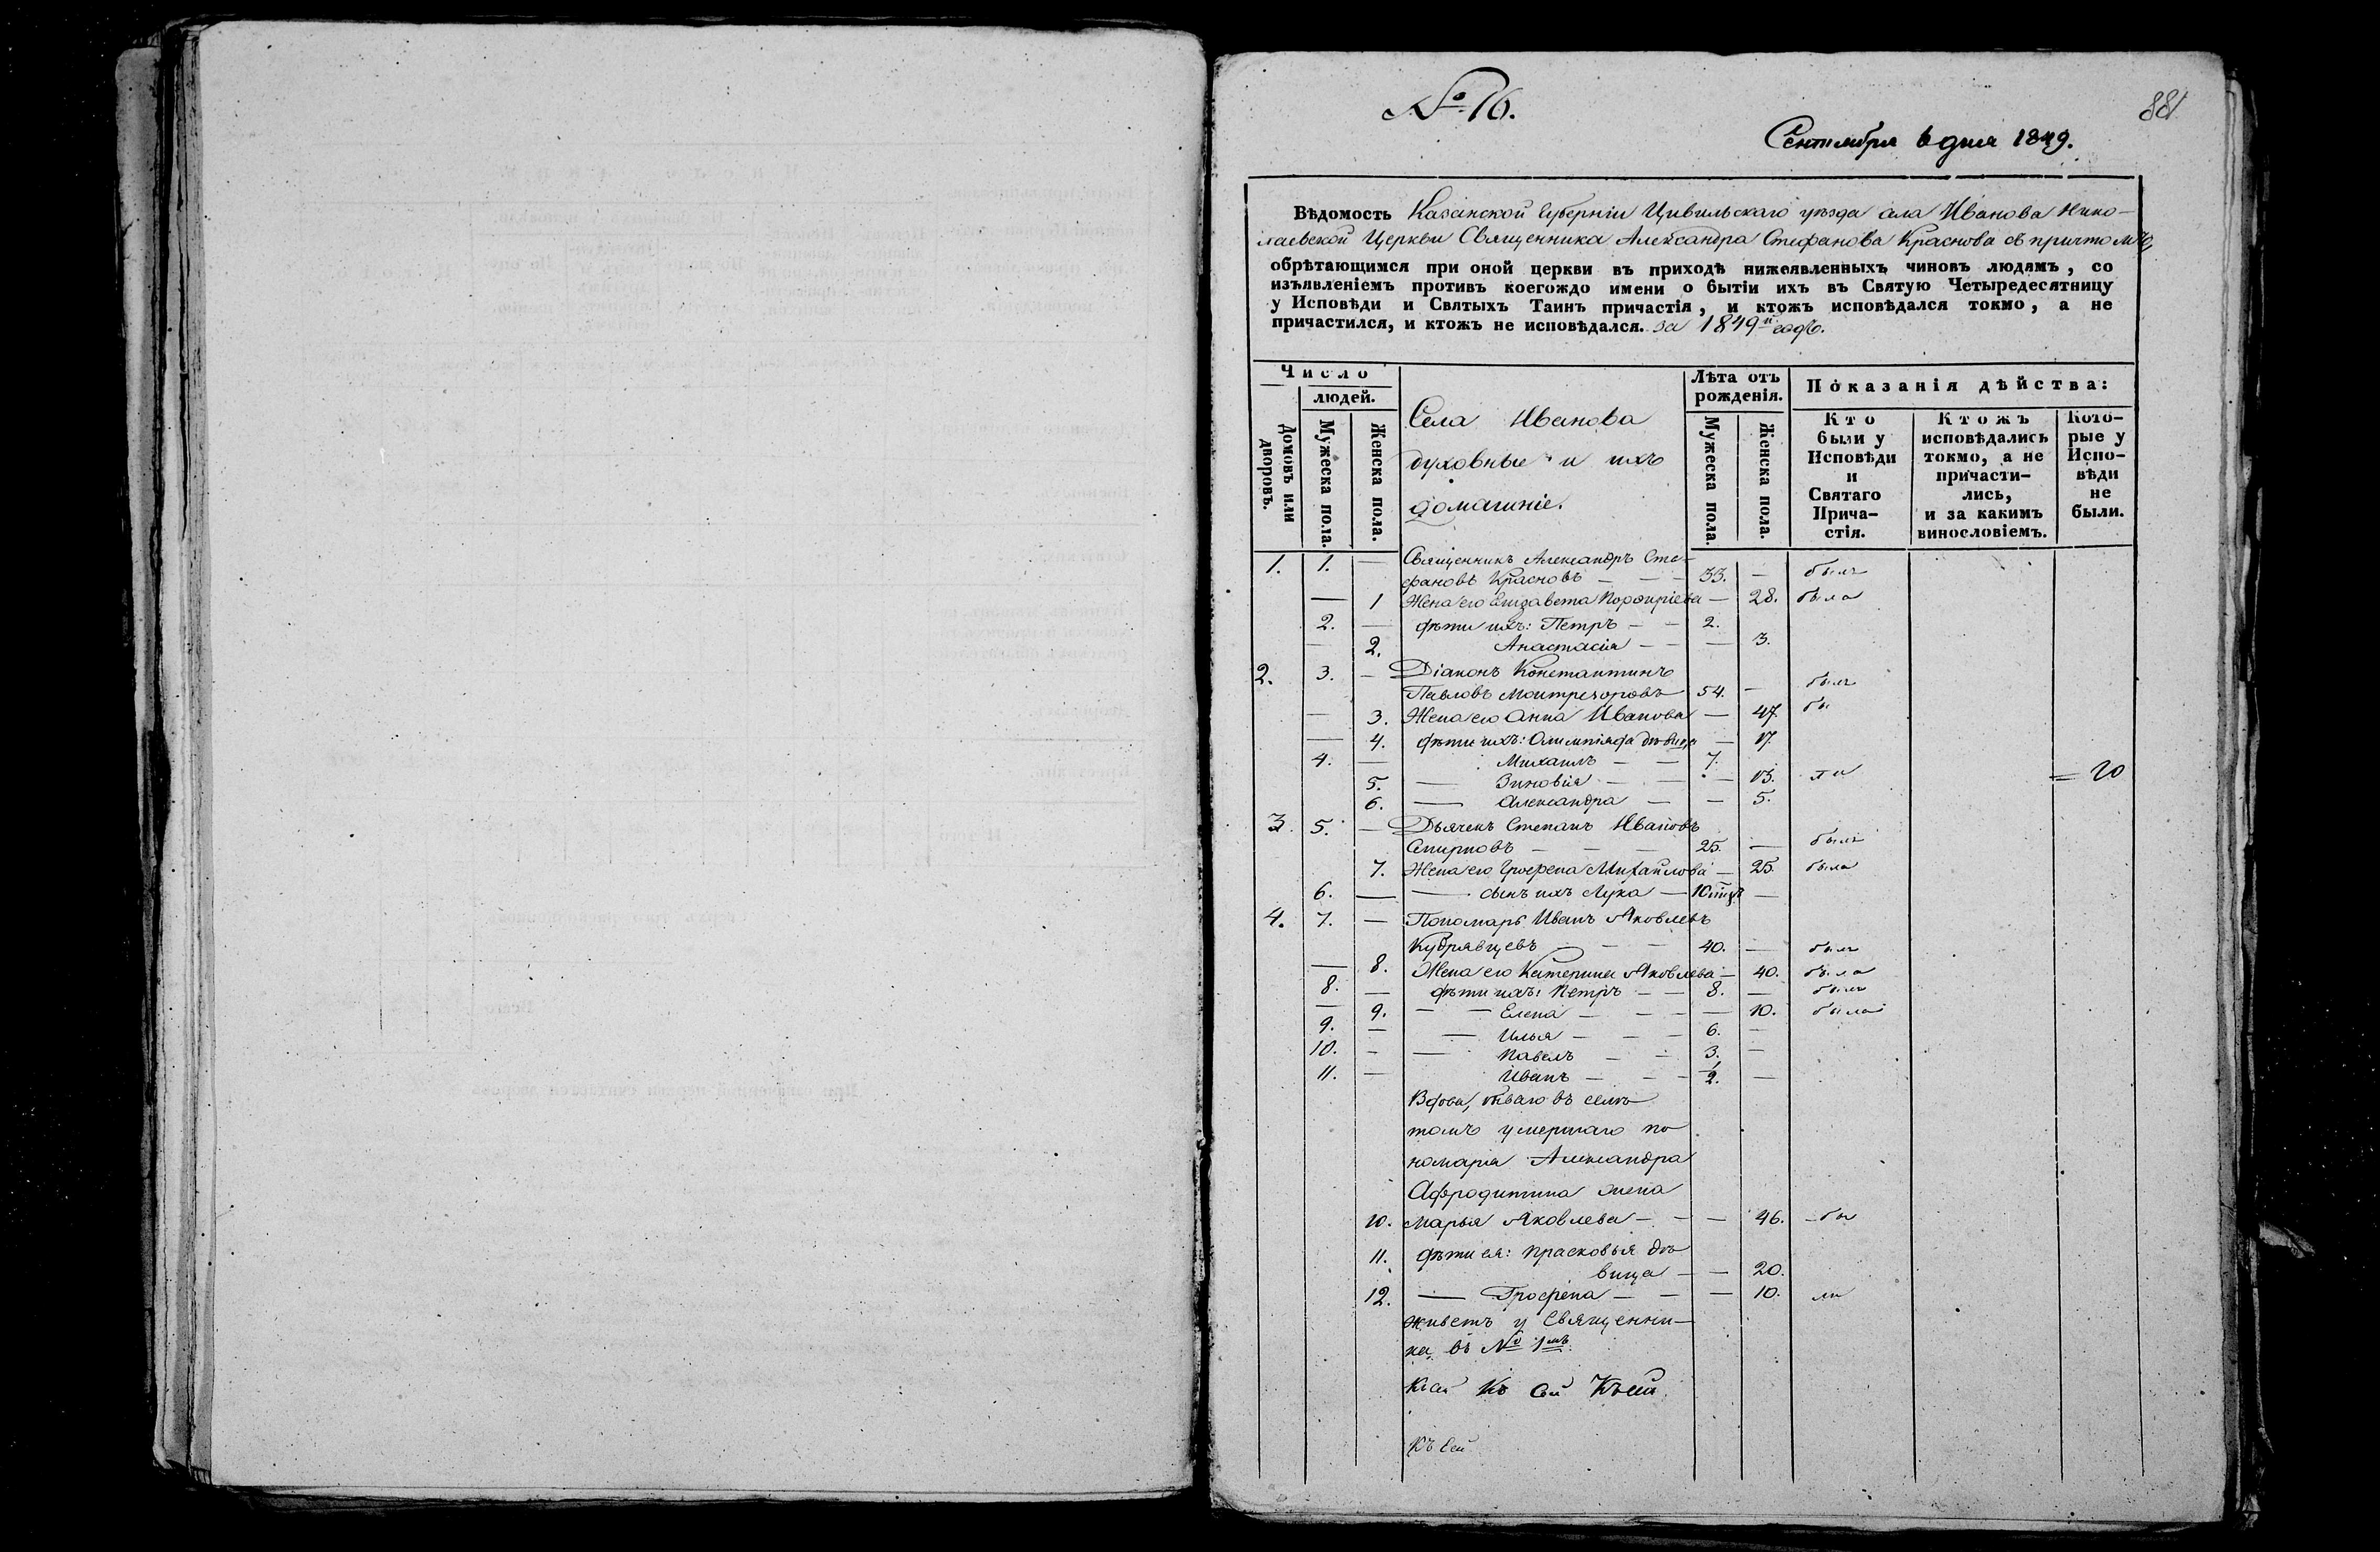 № 76.
881
Сентября 6 дня 1849.
Вѣдомость Казанской Губерніи Цивильскаго уѣзда села Иванова Нико-
лаевской Церкви Священника Александра Стефанова Краснова съ причтомъ,
обрѣтающимся при оной церкви въ приходѣ нижеявленныхъ чиновъ людямъ, со
изъявленіемъ противъ коегождо имени о бытіи ихъ въ Святую Четыредесятницу
у Исповѣди и Святыхъ Таинъ причастія, и ктожъ исповѣдался токмо, а не
причастился, и ктожъ не исповѣдался. за 1849й годъ.
Число
людей.
Домовъ или дворовъ.
Мужеска пола.
Женска пола.
Села Иванова
духовные и ихъ
домашніе.
Лѣта отъ
рожденія.
Мужеска пола.
Женска пола.
Показанія дѣйства:
Кто
были у
Исповѣди
и
Святаго
Прича-
стія.
Ктожъ
исповѣдались
токмо, а не
причасти-
лись,
и за какимъ
винословіемъ.
Кото-
рые у
Испо-
вѣди
не
были.
1. 1. — Священникъ Александръ Сте-
фановъ Красновъ — — — 33. — былъ
— 1 Жена его Елизавета Порфиріева — 28. была
2. — дѣти ихъ: Петръ — — 2.
— 2. Анастасія — — — 3.
2. 3. — Діаконъ Константинъ
Павловъ Монтрезоровъ 54. — былъ
— 3. Жена его Анна Иванова — 47. бы
— 4. дѣти ихъ: Олимпіада дѣвица — 17.
4. — Михаилъ — — 7.
5. — Зиновія — — — 13. = 20
6. — Александра — — 5.
3. 5. — Дьячекъ Степанъ Ивановъ
Смирновъ — — — 25. — былъ
7. Жена его Грофена Михайлова — 25. была
6. — — сынъ ихъ Лука — 10 мцъ —
4. 7. — Пономарь Иванъ Яковлевъ
Кудрявцевъ — — — 40. — былъ
— 8. Жена его Катерина Яковлева — 40. была
8. — дѣти ихъ: Петръ — — 8. — былъ
— 9. — — Елена — — — 10. была
9. — — Илья — — — 6. —
10. — — Павелъ — — 3. —
11. — Иванъ — — — 1/2. —
Вдова, бываго въ селѣ
томъ умершаго по
номаря Александра
Афродитина жена
10. Марья Яковлева — — — 46. — бы
11. дѣти ея: Прасковья дѣ
вица — — 20.
12. — Грофена — — — 10. ла
живетъ у Священни-
ка въ № 1мъ
Къ Сей Къ сей
Къ Сей